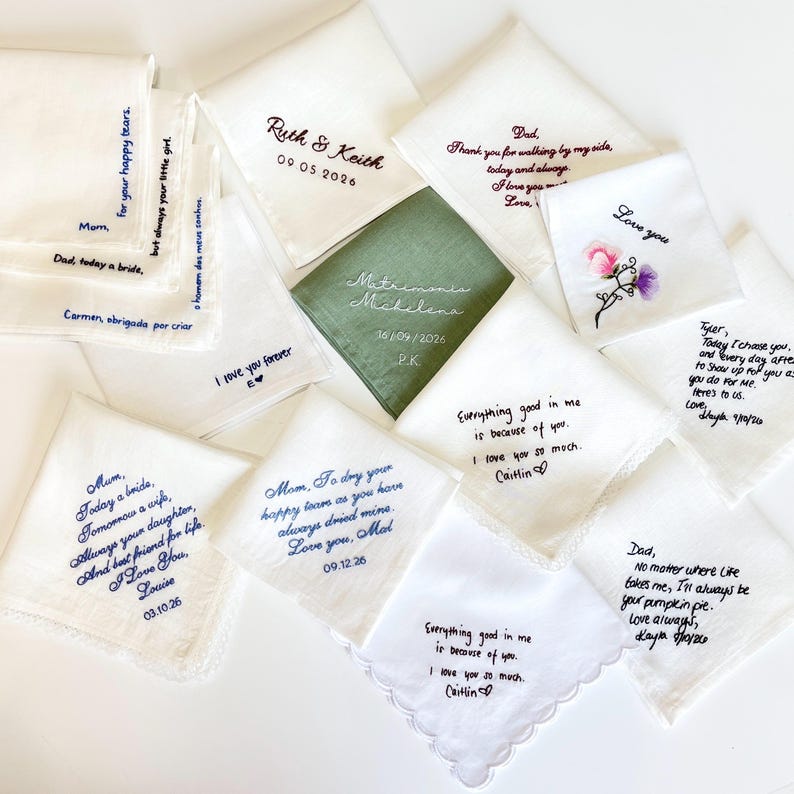 For your happy tears.
Mom,
but always your little girl.
Dad, today a bride,
o homem dos meus sonhos.
Carmen, obrigada por criar
Ruth & Keith
09.05.2026
Dad,
Thank you for walking by my side,
today and always.
I love you
Love,
Love you
Matrimonio
Michelena
16/09/2026
P.K.
I love you forever
E
Tyler,
Today I choose you,
and every day after
to show up for you as
you do for me.
Here's to us.
Love,
Kayla 9/10/26
Everything good in me
is because of you.
I love you so much.
Caitlin
Mum,
Today a bride,
Tomorrow a wife,
Always your daughter,
And best friend for life.
I Love You,
Louise
03.10.26
Mom, To dry your
happy tears as you have
always dried mine.
Love you, Mal
09.12.26
Everything good in me
is because of you.
I love you so much.
Caitlin
Dad,
No matter where life
takes me, I'll always be
your pumpkin pie.
Love always,
Kayla 9/10/26